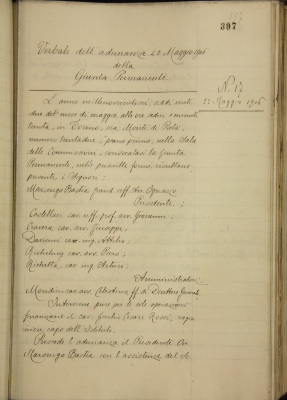 397
Verbale dell'adunanza 22 Maggio 1906
della
Giunta Permanente
N. 17
22 Maggio 1906
L'anno millenovecentosei, addì venti
due del mese di maggio, alle ore e minuti
trenta, in Torino, via Monte di Pietà,
numero trentadue, primo piano, nella Sala
delle Commissioni, convocatasi la Giunta
Permanente, nelle prescritte forme, risultano
presenti i Signori:
Marsengo Bastia grand. uff. Avv. Ignazio
Presidente;
Castelleri cav. uff. prof. avv. Giovanni;
Cravera cav. avv. Giuseppe;
cav. ing. Attilio;
cav. avv. Piero;
Richetta cav. ing. Arturo;
Amministratori;
Mondin cav. avv. ff. di Direttore Generale
Interviene pure per le sole operazioni
finanziarie il cav. Cesare Rossi, ragio
niere capo dell'Istituto.
Presiede l'adunanza il Presidente On.
Marsengo Bastia con l'assistenza del Se-